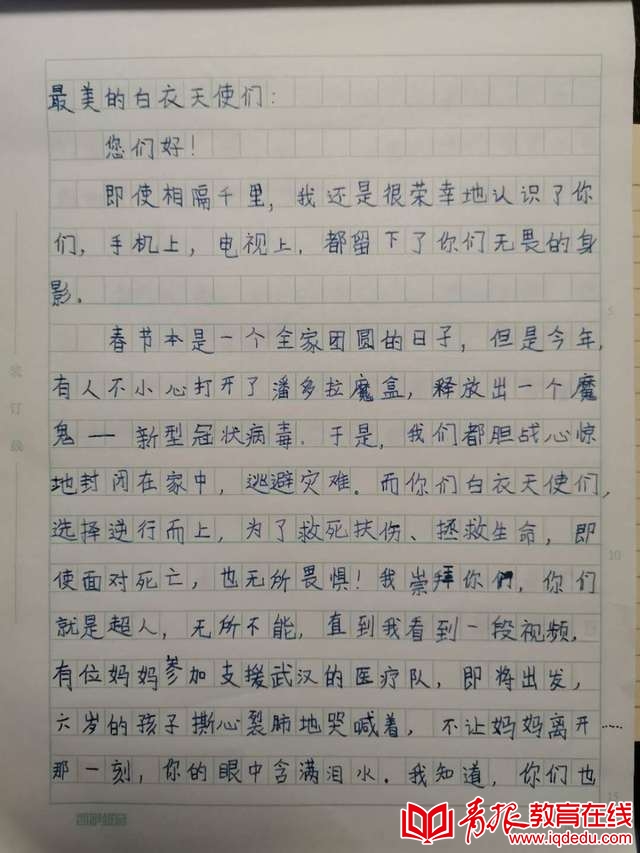 最美的白衣天使们：
您们好！
即使相隔千里，我还是很荣幸地认识了你
们，手机上，电视上，都留下了你们无畏的身
影。
春节本是一个全家团圆的日子，但是今年，
有人不小心打开了潘多拉魔盒，释放出一个魔
鬼——新型冠状病毒。于是，我们都胆战心惊
地封闭在家中，逃避灾难。而你们白衣天使们，
选择逆行而上，为了救死扶伤、拯救生命，即
使面对死亡，也无所畏惧！我崇拜你们，你们
就是超人，无所不能，直到我看到一段视频，
有位妈妈参加支援武汉的医疗队，即将出发，
六岁的孩子撕心裂肺地哭喊着，不让妈妈离开……
那一刻，你的眼中含满泪水。我知道，你们也
装订线
5
10
15
青报教育在线
www.iqdedu.com